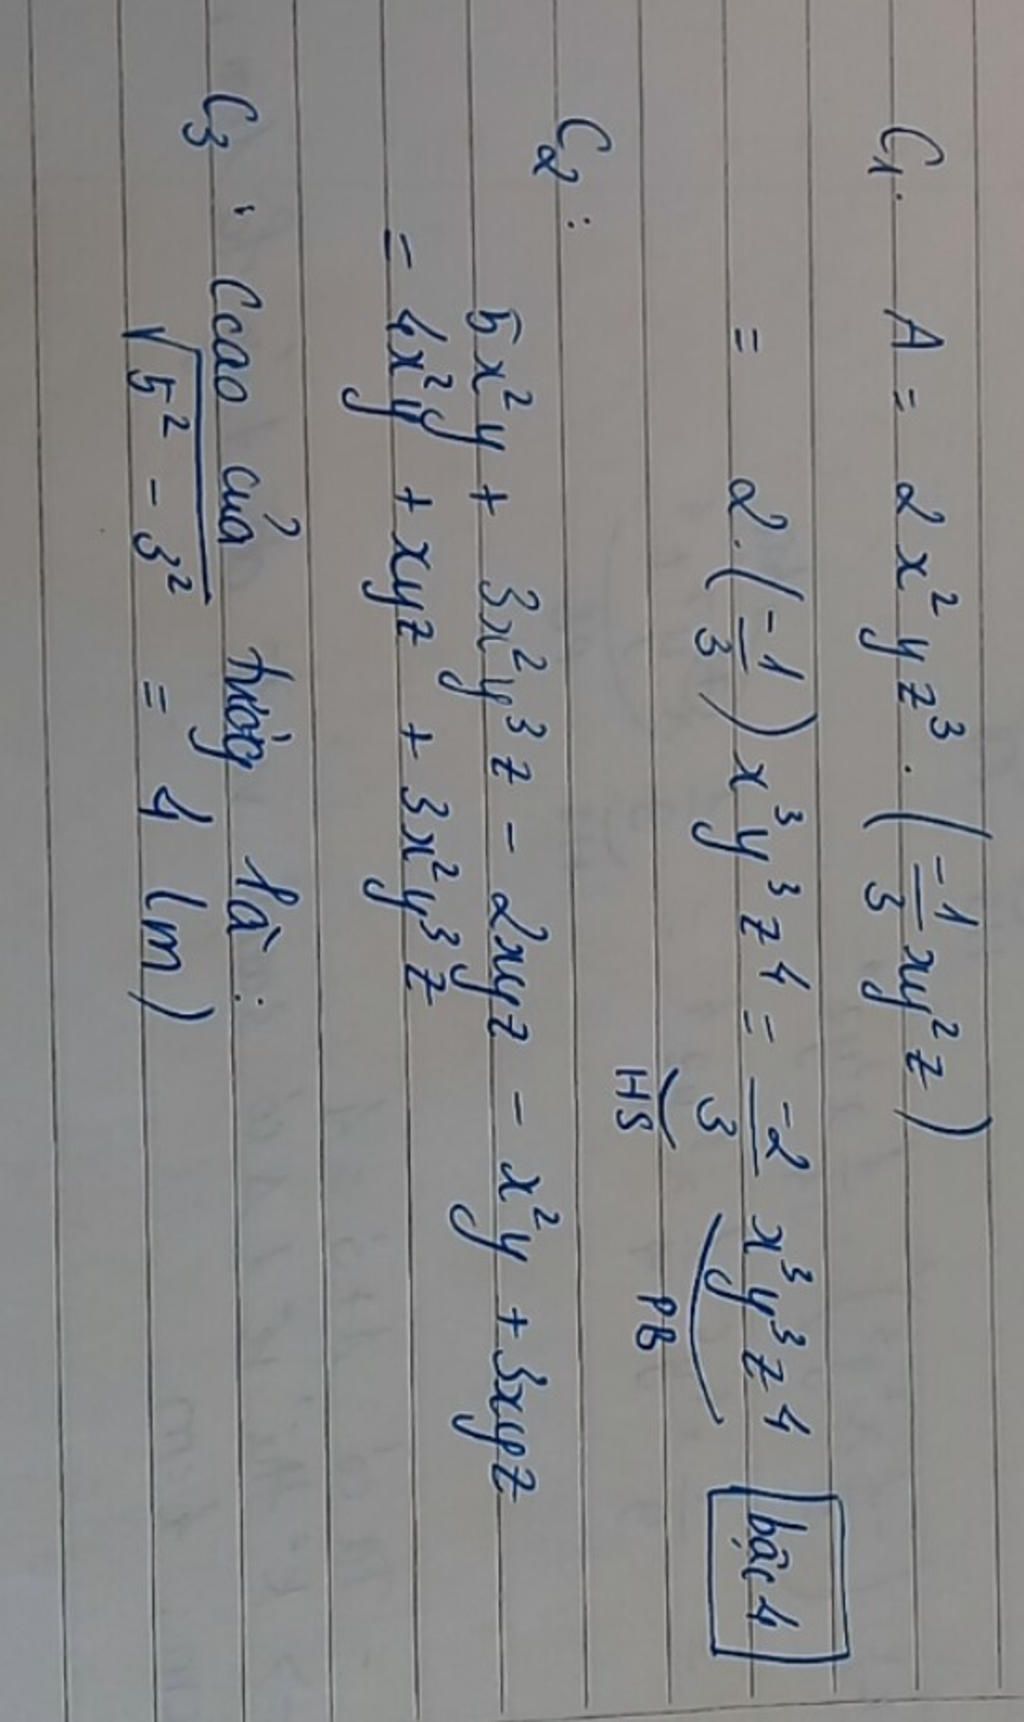 C₁. A = 2x²yz³ . (-1/3 xy²z)
= 2.(-1/3) x³y³z⁴ = -2/3 x³y³z⁴ bậc 4
HS PB
C₂ : 5x²y + 3x²y³z - 2xyz - x²y + 3xyz
= 4x²y + xyz + 3x²y³z
C₃ : Ccao của tường là :
√5² - 3² = 4 (m)